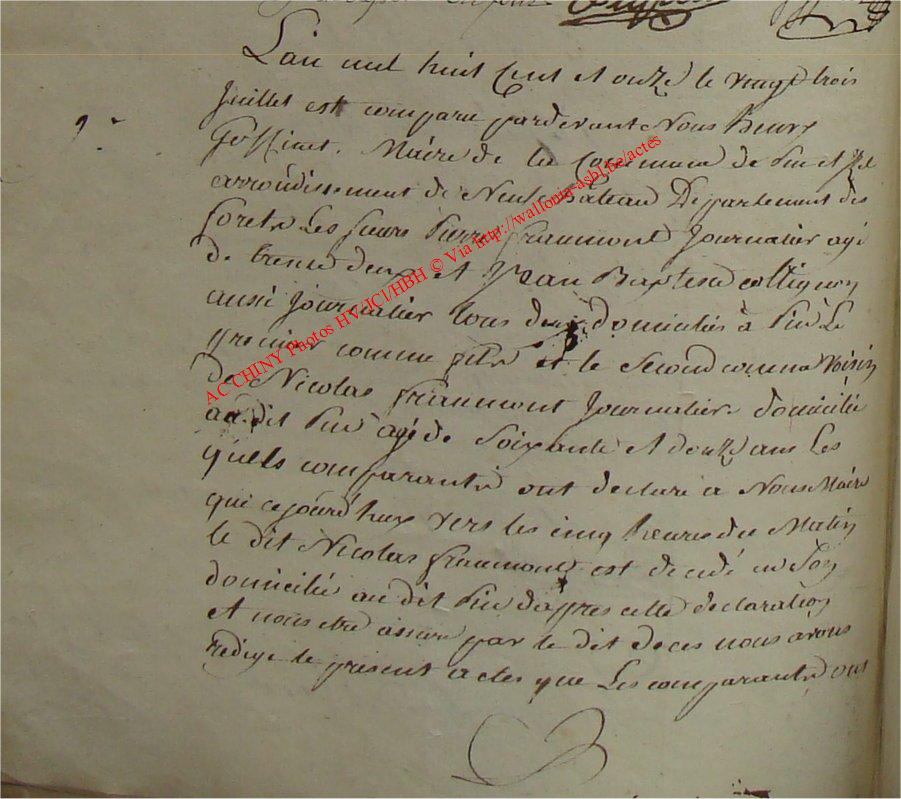 L'an mil huit Cent et onze le vingt trois
9e
Juillet est comparu pardevant Nous henry
Maire de la Commune de Pin et Izel
arrondissement de Neufchateau Département des
forets Les sieurs Pierre Framont Journalier agé
de trente deux et Jean Baptiste collignon
aussi Journalier tous deux domicilies à Pin Le
premier comme fils et le second comme Voisin
de Nicolas Framont Journalier domicilié
au dit Pin agé de Soixante et douze ans Les
quels comparants ont declaré a Nous Maire
que cejourd'huy vers les cinq heures du Matin
le dit Nicolas Framont est decedé en Son
domicilié au dit Pin d'appres cette declaration
et nous etre assuré par le dit deces nous avons
rédigé le present actes que Les comparants ont
AC CHINY Photos HV/JCl/HBH © Via http://wallonia-asbl.be/actes